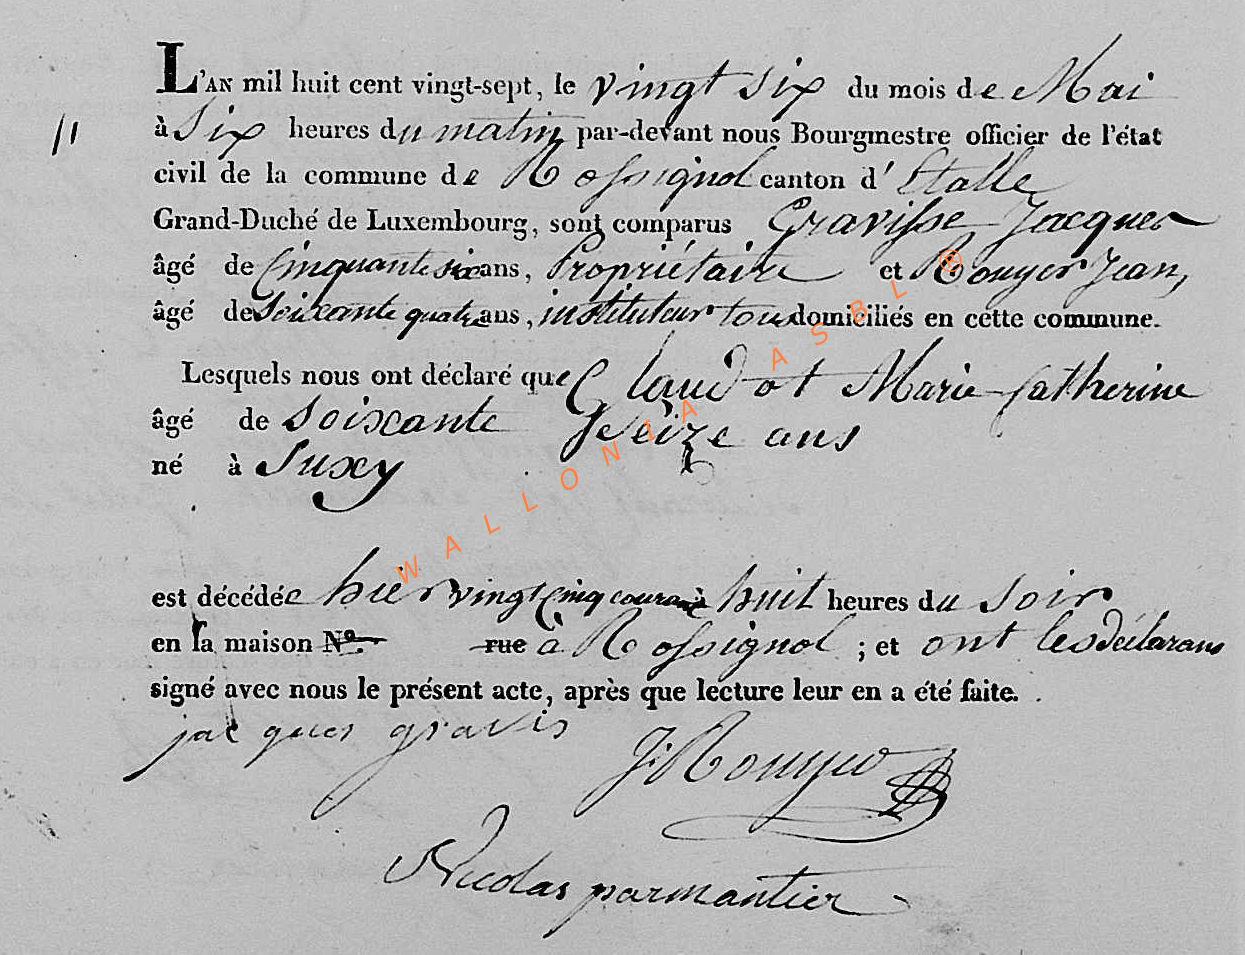 L'AN mil huit cent vingt-sept, le vingt six du mois de Mai
11 à Six heures du matin par-devant nous Bourgmestre officier de l'état
civil de la commune de Rossignol canton d' Etalle
Grand-Duché de Luxembourg, sont comparus Gravisse Jacques
âgé de Cinquante six ans, Propriétaire et Rouyer Jean,
âgé de Soixante quatre ans, instituteur tous domiciliés en cette commune.
Lesquels nous ont déclaré que Glaudot Marie Catherine
âgé de Soixante Seize ans
né à Suxy
est décédée hier vingt Cinq courant à huit heures du Soir
en la maison N°. rue à Rossignol ; et ont les déclarans
signé avec nous le présent acte, après que lecture leur en a été faite.
jacques gravis
J: Rouyer
Nicolas parmantier
WALLONIA ASBL ®